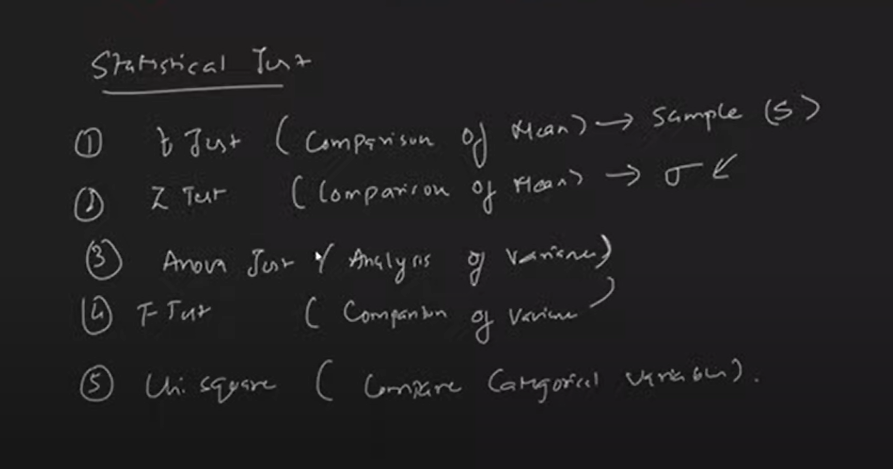 Statistical Test
① t Test ( Comparison of Mean) → Sample (S)
② Z Test ( Comparison of Mean) → σ ↙
③ Anova Test ( Analysis of Variance)
④ F Test ( Comparison of Variance )
⑤ Chi square ( Compare Categorical variables).